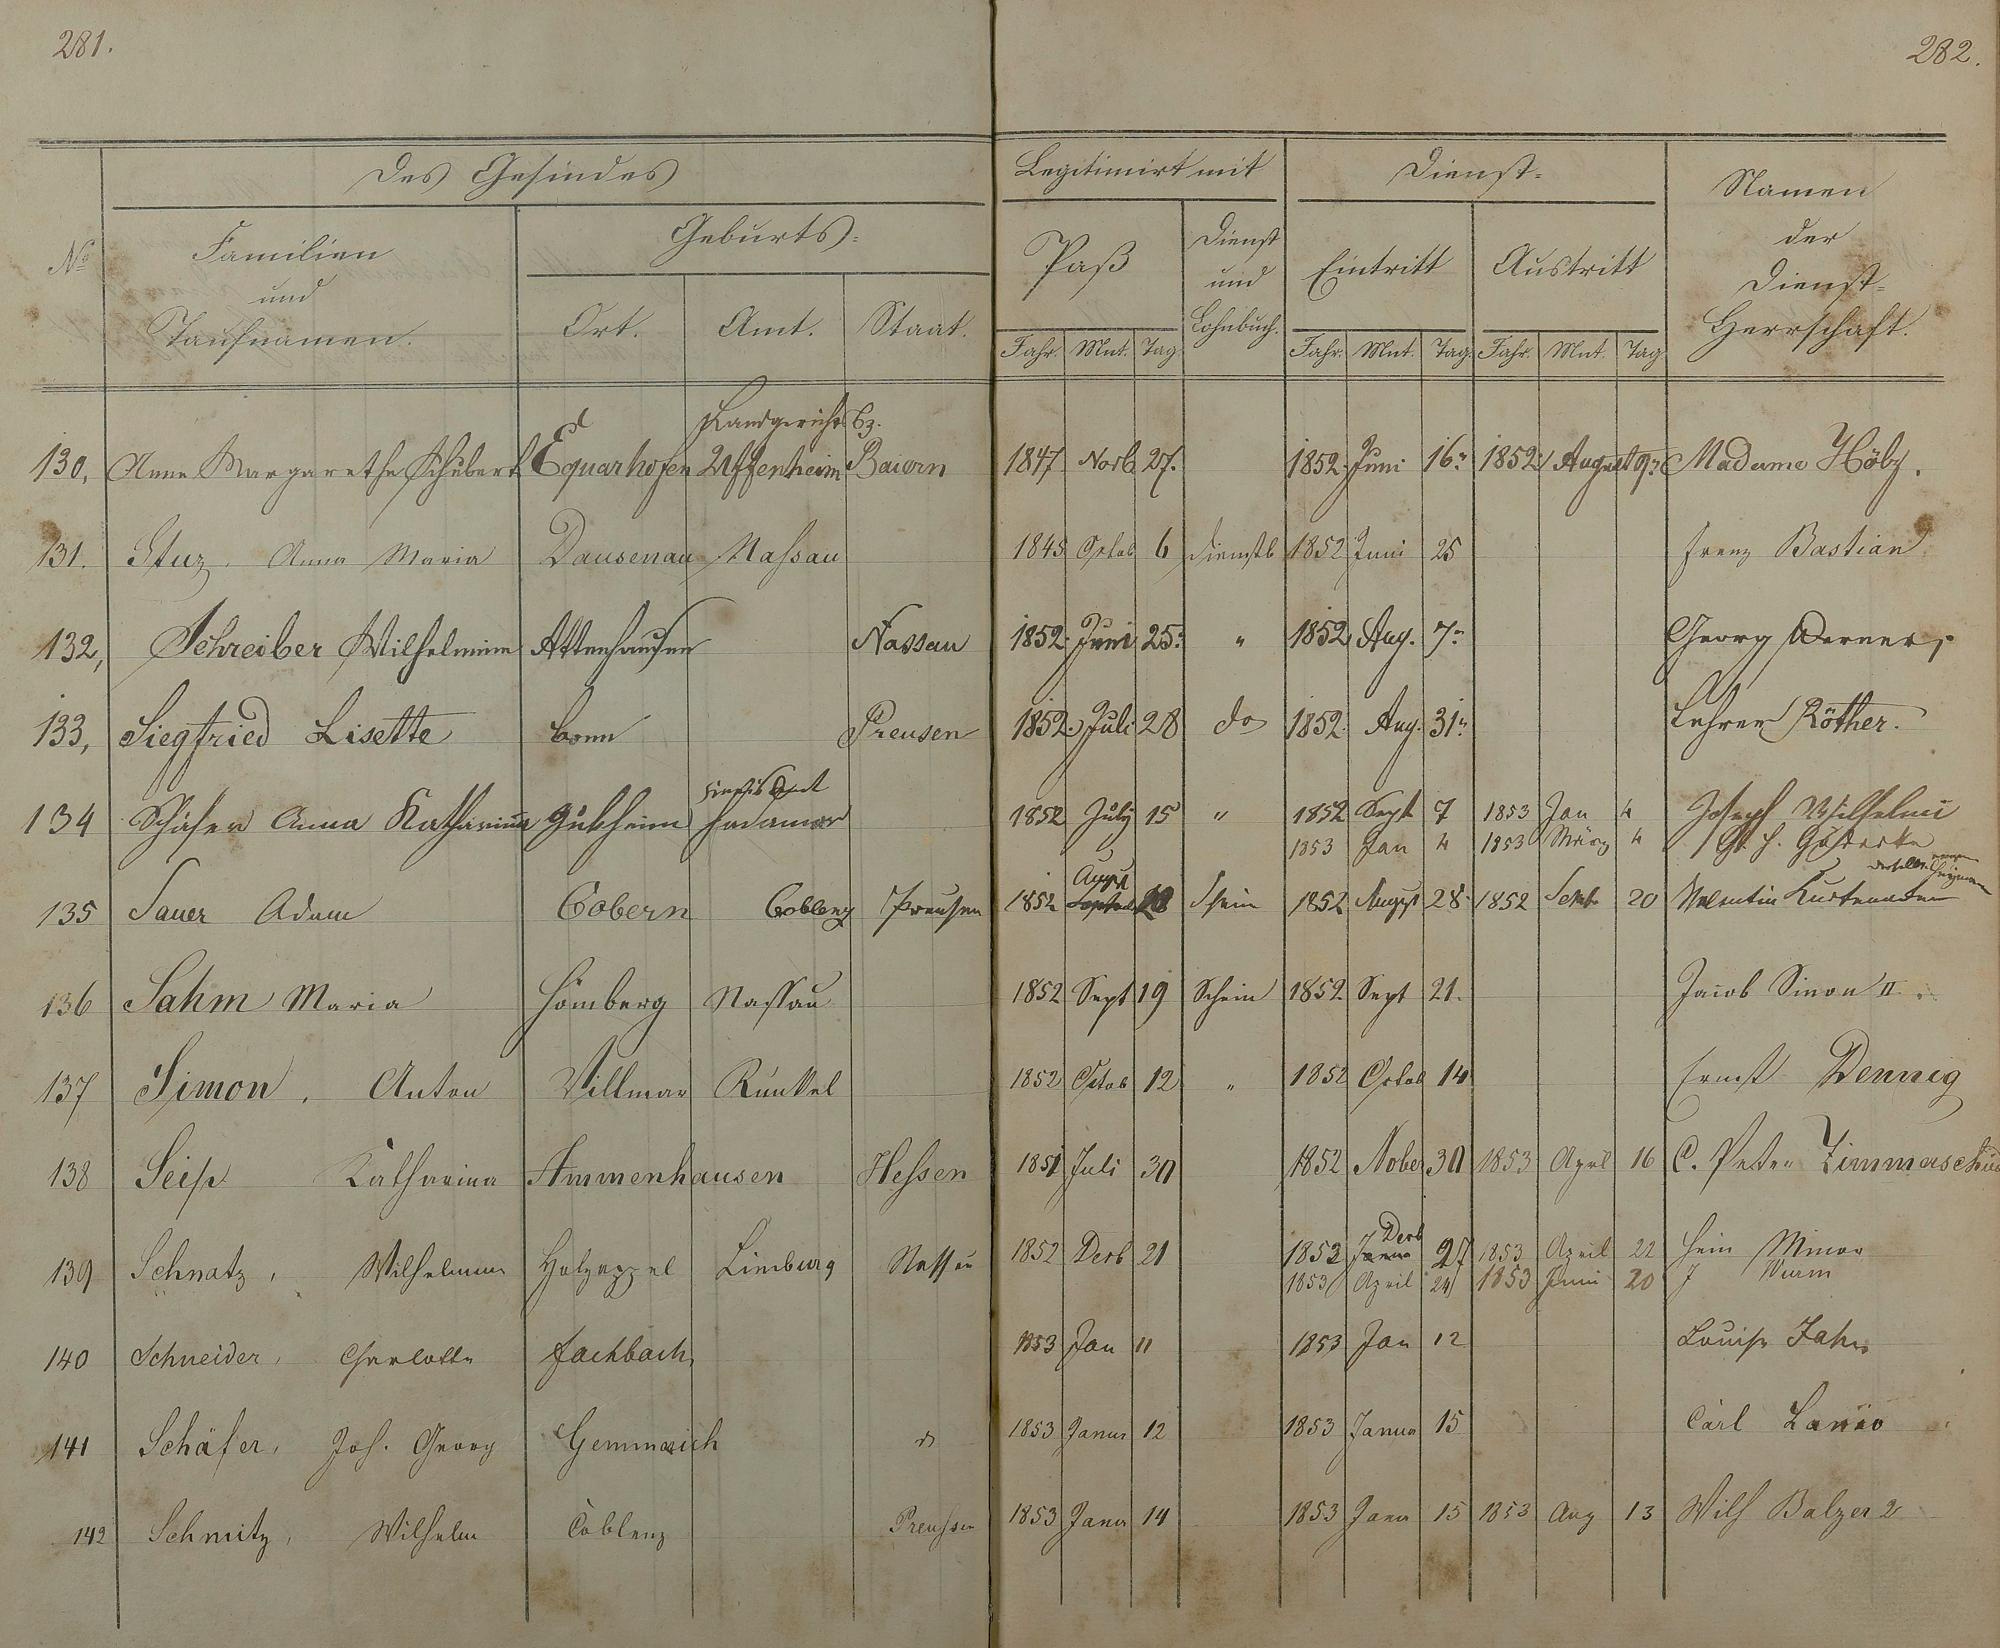 281.
282.
Des Gesindes
Legitimirt mit
Dienst-
Namen der Dienst-Herrschaft.
No
Familien und Taufnamen.
Geburts-
Ort. Amt. Staat.
Paß
Dienst und Lohnbuch.
Eintritt
Austritt
Jahr. Mnt. Tag
Jahr. Mnt. Tag. Jahr. Mnt. Tag
Landgerichts Bz.
130, Anna Margaretha Schubert Equarhofen Uffenheim Baiern 1847 Novb 27. 1852. Juni 16. 1852 August 9. Madame Höbz.
131. Stuz, Anna Maria Dausenau Nassau 1845 Octob 6 Dienstb 1852 Juni 25 Franz Bastian
132, Schreiber Wilhelmine Attenhausen Nassau 1852. Juni 25. " 1852 Aug. 7. Georg Werner,
133, Siegfried Lisette Bonn Preusen 1852. Juli 28 do 1852. Aug. 31. Lehrer Röther.
134 Schäfer Anna Katharina Gükheim Hadamar 1852 July 15 " 1852 Sept 7 1853 Jan 4 Joseph Wilhelmi
1853 Jan 4 1853 März 4
135 Sauer Adam Cobern Coblenz Preussen 1852 Augst 28 Schein 1852 August 28. 1852 Sept 20 Valentin
136 Sahm Maria Hömberg Nassau 1852 Sept 19 Schein 1852 Sept 21. Jacob Simon II.
137 Simon, Anton Villmar Runkel 1852 Octob 12 " 1852 Octob 14 Ernst Dennig
138 Seip Katharina Ammenhausen Hessen 1851 Juli 30 1852 Nober 30 1853 April 16 C. Peter Zimmerschied
139 Schnatz, Wilhelmine Holzappel Limburg Nassau 1852 Decb 21 1852 Decb 27 1853 April 22 Hein Minor
1853 April 24 1853 Juni 20 J Wurm
140 Schneider, Charlotte Fachbach 1853 Jan 11 1853 Jan 12 Louise Jahn
141 Schäfer, Joh. Georg Gemmerich 1853 Janur 12 1853 Janua 15 Carl Lanio
142 Schmitz, Wilhelm Coblenz Preussen 1853 Janu 14 1853 Janu 15 1853 Aug 13 Wilh Balzer 2